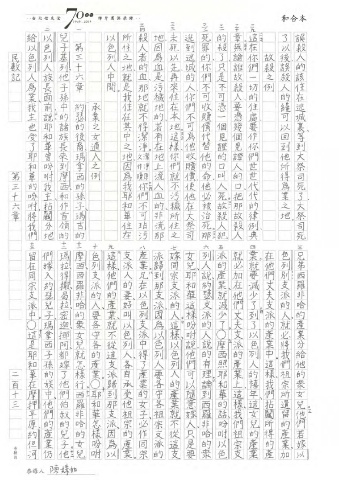 和合本
誤殺人的該住在逃城裏等到大祭司死
了以後誤殺人的纔可以回到他所得為業之地
故殺之例
這在你們一切的住處要作你們世世代代的律例典
章無論誰故殺人要憑幾個見證人的口把那故殺
人的殺了只是不可憑一個見證人的口叫人死故殺人犯
死罪的你們不可收贖價代替他的命他必被治死那
逃到逃城的人你們不可為他收贖價使他在大祭司
未死以先再來住在本地這樣你們就不污穢所住之
地因為血是污穢地的若有在地上流人血的非流那
殺人者的血那地就不得潔淨你們不可玷污
所住之地就是我住在其中之地因為我耶和華住在
以色列人中間
承業之女適人之例
第三十六章 約瑟的後裔瑪拿西的孫子瑪吉的
兒子基列他子孫中的諸族長來到摩西和作首領的
以色列人族長面前說耶和華曾吩咐我主拈鬮分地
給以色列人為業我主也受了耶和華的吩咐將我們
民數記 第三十六章
兄弟西羅非哈的產業分給他的眾女兒他們若嫁以
色列別支派的人就必將我們祖宗所遺留的產業加
在他們丈夫支派的產業中這樣我們拈鬮所得的產
業就要減少了到了以色列人的禧年這女兒的產業
就必加在他們丈夫支派的產業上這樣我們祖宗支
派的產業就減少了○摩西照耶和華的話吩咐以色
列人說約瑟支派的人說的有理論到西羅非哈的眾
女兒耶和華這樣吩咐說他們可以隨意嫁人只是要
嫁同宗支派的人這樣以色列人的產業就不從這支
派歸到那支派因為以色列人要各守各祖宗支派的
產業凡在以色列支派中得了產業的女子必作同宗
支派人的妻好叫以色列人各自承受他祖宗的產業
這樣他們的產業就不從這支派歸到那支派因為以
色列支派的人要各守各的產業○耶和華怎樣吩咐
摩西西羅非哈的眾女兒就怎樣行西羅非哈的女兒
瑪拉得撒曷拉密迦挪阿都嫁了他們伯叔的兒子他
們嫁入約瑟兒子瑪拿西子孫的族中他們的產業仍
留在同宗支派中○這是耶和華在摩押平原約但河
二百十三